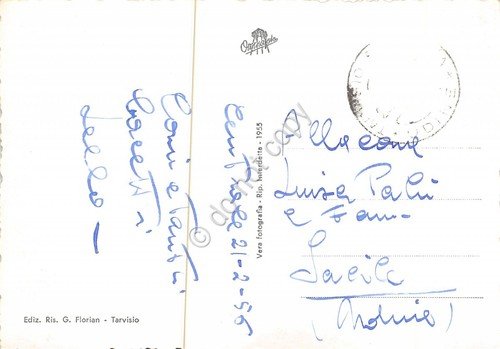 Cari e Tanti
bacetti
Lello
21-2-56
Vera fotografia - Rip. interdetta - 1955
Alla cara
Luisa Palù
e Fam.
Sacile
(Udine)
Ediz. Ris. G. Florian - Tarvisio
do not copy